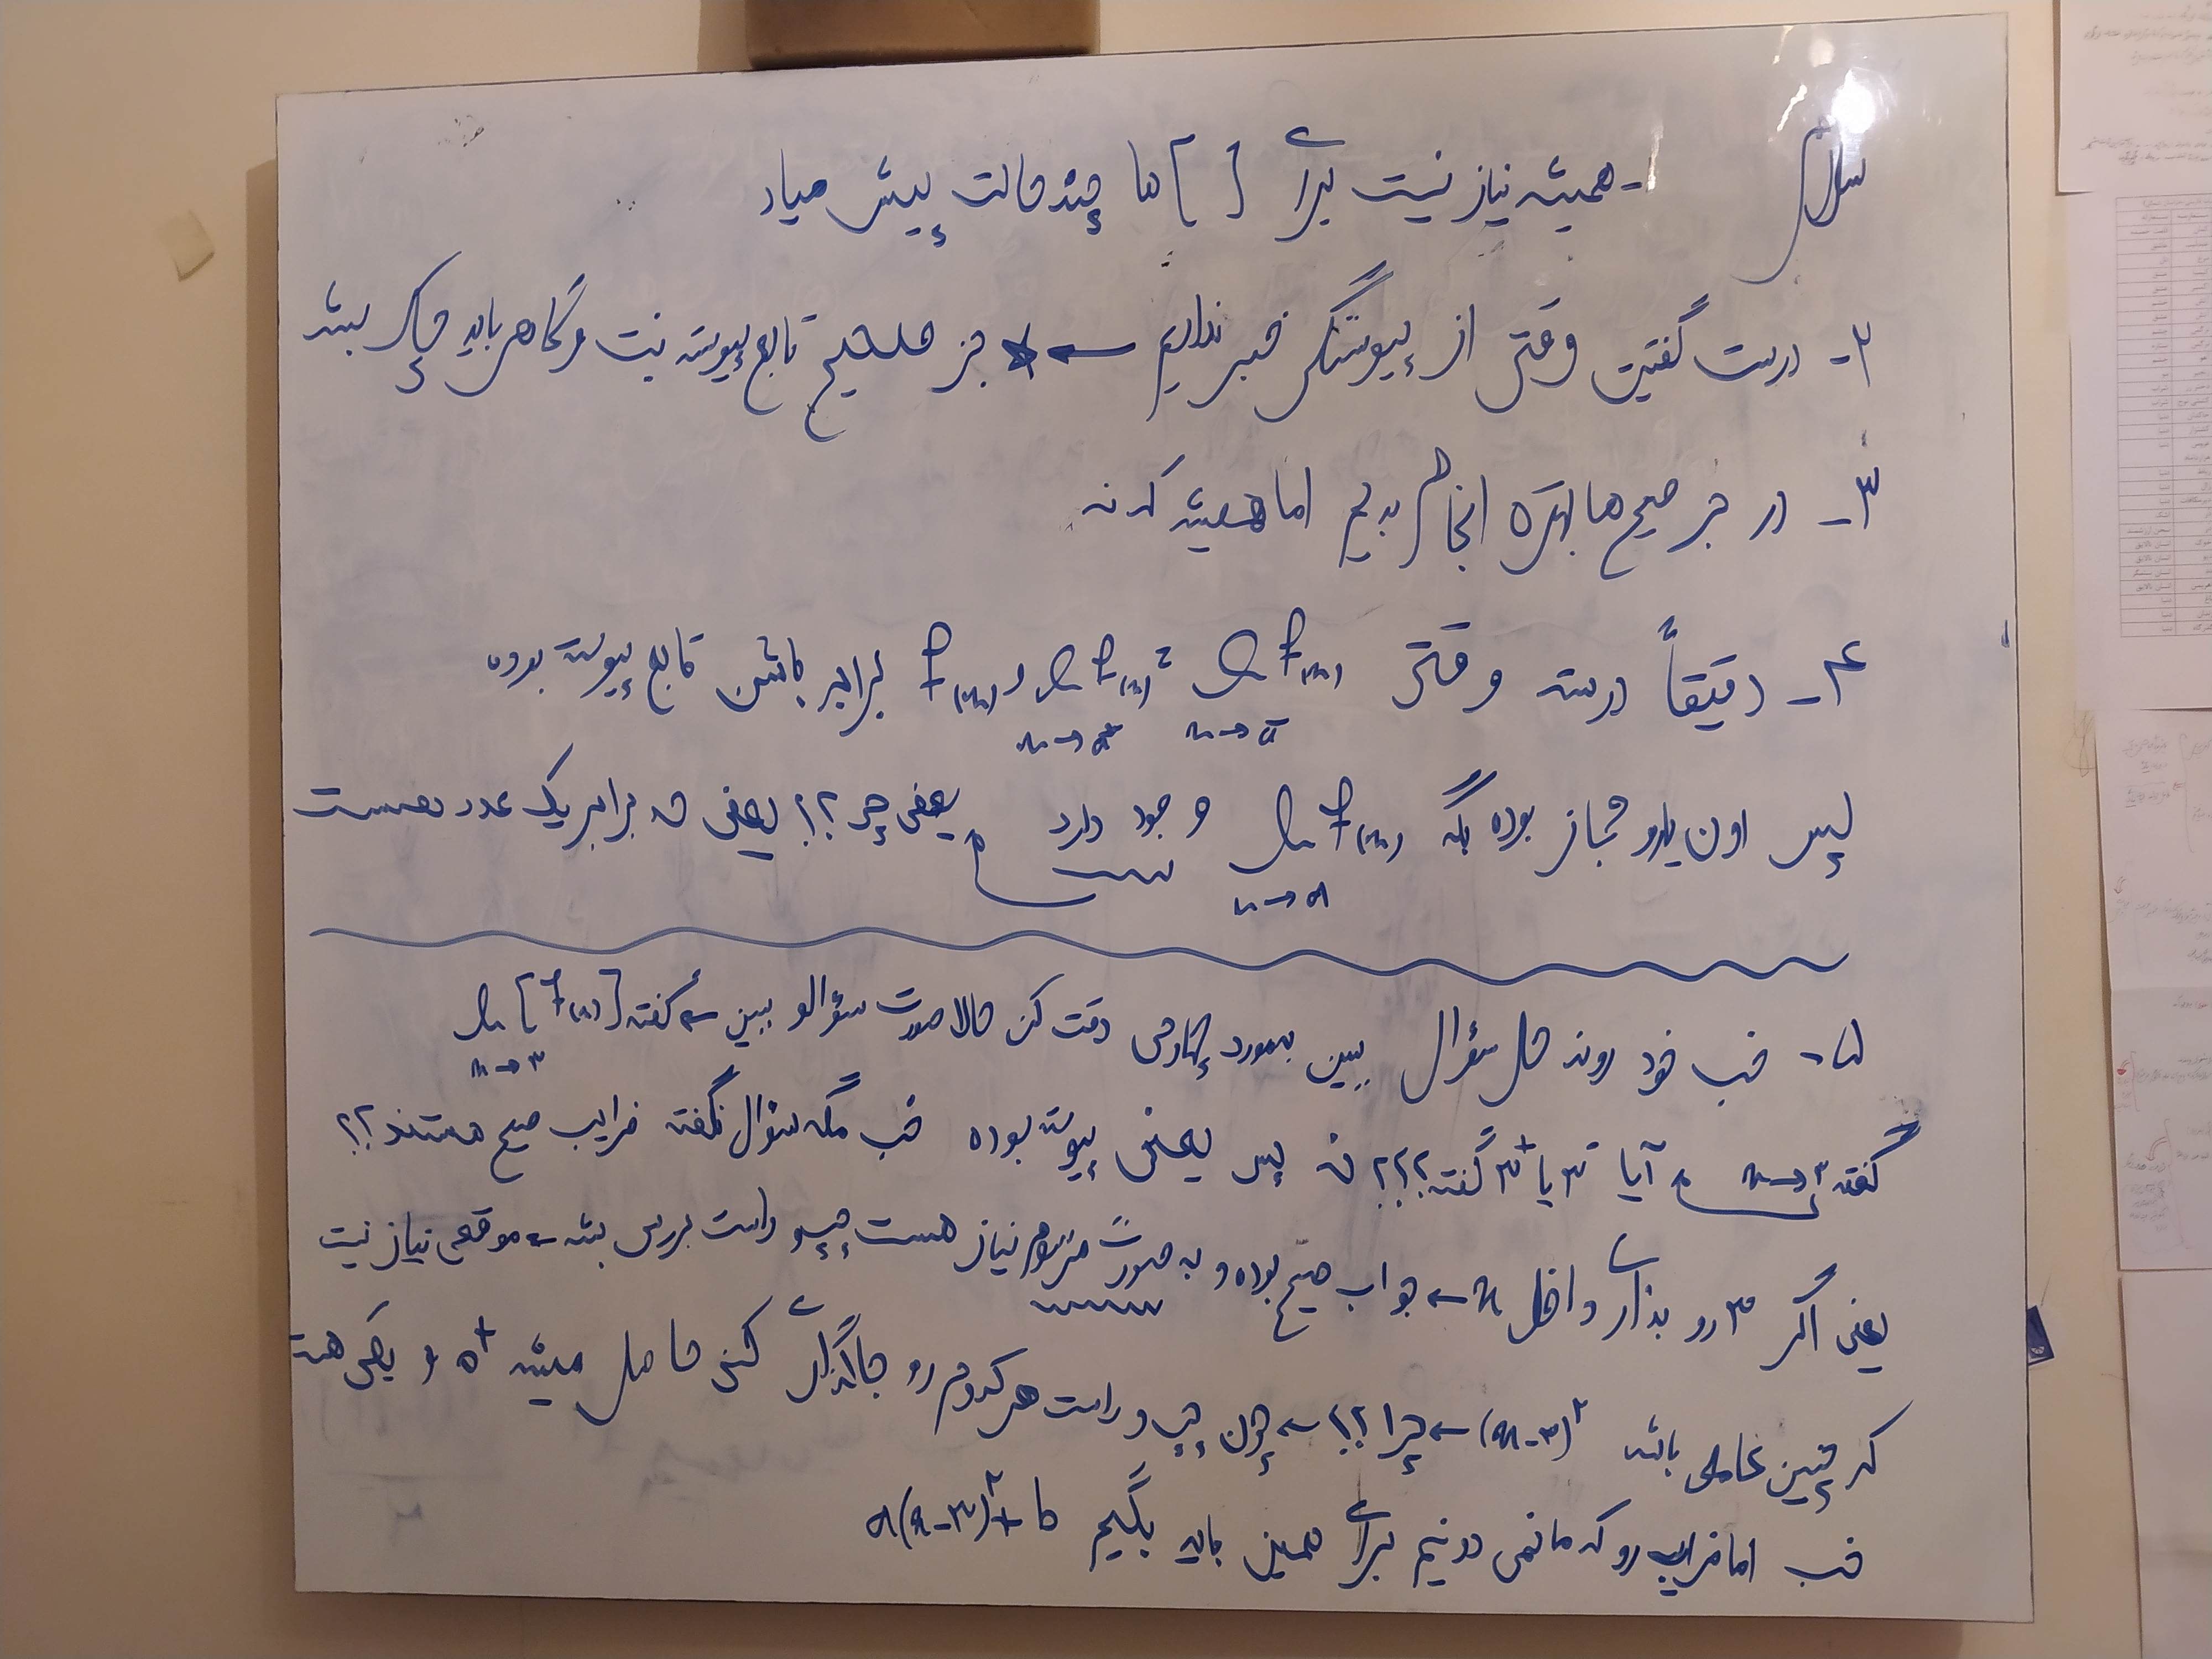 سلام ۱- همیشه نیاز نیست برای [ ] ها چند حالت پیش میاد
۲- درست گفتین وقتی از پیوستگی خبر نداریم ← جز صحیح تابع پیوسته نیست و گاهی باید چک بشه
۳- در جز صحیح ها بهتره انجام بدیم اما همیشه که نه
۴- دقیقاً درسته وقتی lim f(x) x→a⁻ = lim f(x) x→a⁺ و f(x) برابر باشن تابع پیوسته بوده
پس اون یارو مجاز بوده بگه lim f(x) x→a وجود دارد یعنی چی؟؟ یعنی حد برابر یک عدد هست
۵- خب خود روند حل سؤال ببین بهمورد چهارمی دقت کن حالا صورت سؤالو ببین ← گفته lim [f(x)] x→۳
گفته x→۳ آیا ۳⁻ یا ۳⁺ گفته؟؟؟ نه پس یعنی پیوسته بوده خب مگه سؤال نگفته ضرایب صحیح هستند؟؟
یعنی اگر ۳ رو بذاری داخل x ← جواب صحیح بوده و به صورت مرسوم نیاز هست چپو راست بررسی بشه ← موقعی نیاز نیست
که چنین عاملی باشه (x-۳)² ← چرا؟؟ ← چون چپ و راست هر کدوم رو جاگذاری کنی حاصل میشه ۰⁺ و یکی هست
خب اما ضرایب رو که ما نمی دونیم برای همین باید بگیم a(x-۳)²+b